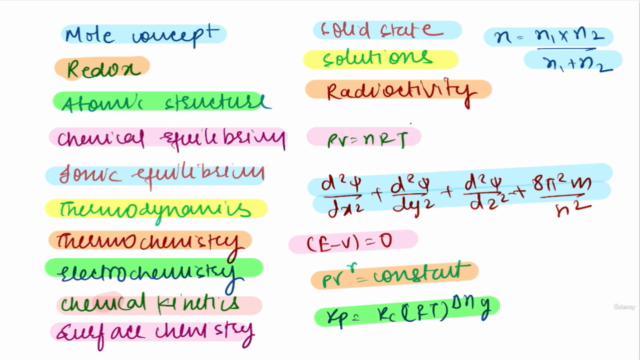 Mole concept
Redox
Atomic structure
Chemical equilibrium
Ionic equilibrium
Thermodynamics
Thermochemistry
Electrochemistry
chemical kinetics
Surface chemistry
solid state
solutions
Radioactivity
PV = nRT
d²ψ/dx² + d²ψ/dy² + d²ψ/dz² + 8π²m/h²
(E-V) = 0
PV^r = constant
Kp = Kc (RT)^Δng
n = n₁ × n₂ / n₁ + n₂
Udemy